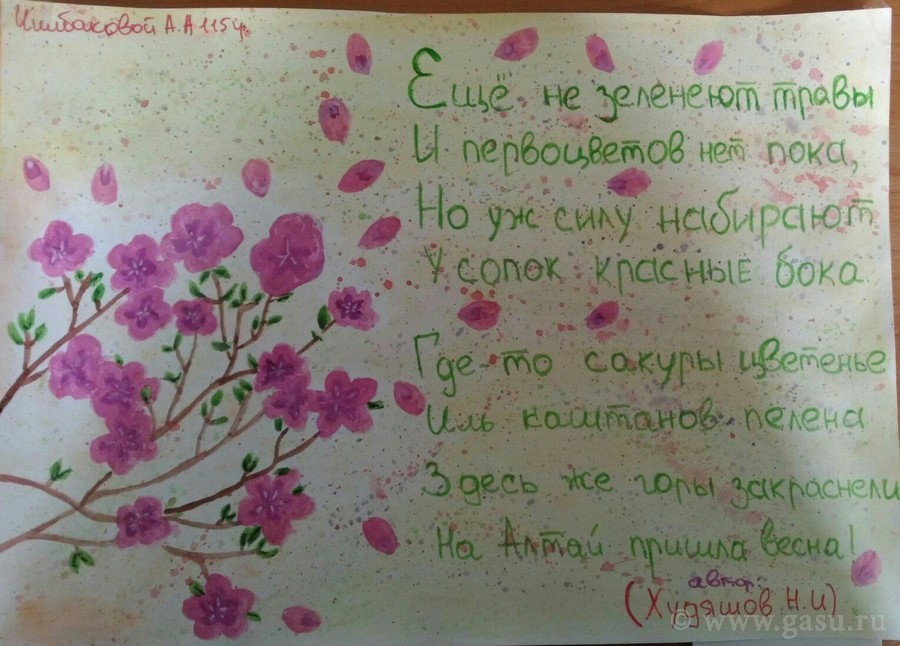 Ишбаховой А.А 115 гр.
Ещё не зеленеют травы
И первоцветов нет пока,
Но уж силу набирают
У сопок красные бока
Где-то сакуры цветенье
Иль каштанов пелена
Здесь же горы закраснели
На Алтай пришла весна!
автор:
(Худяшов Н.И)
© www.gasu.ru